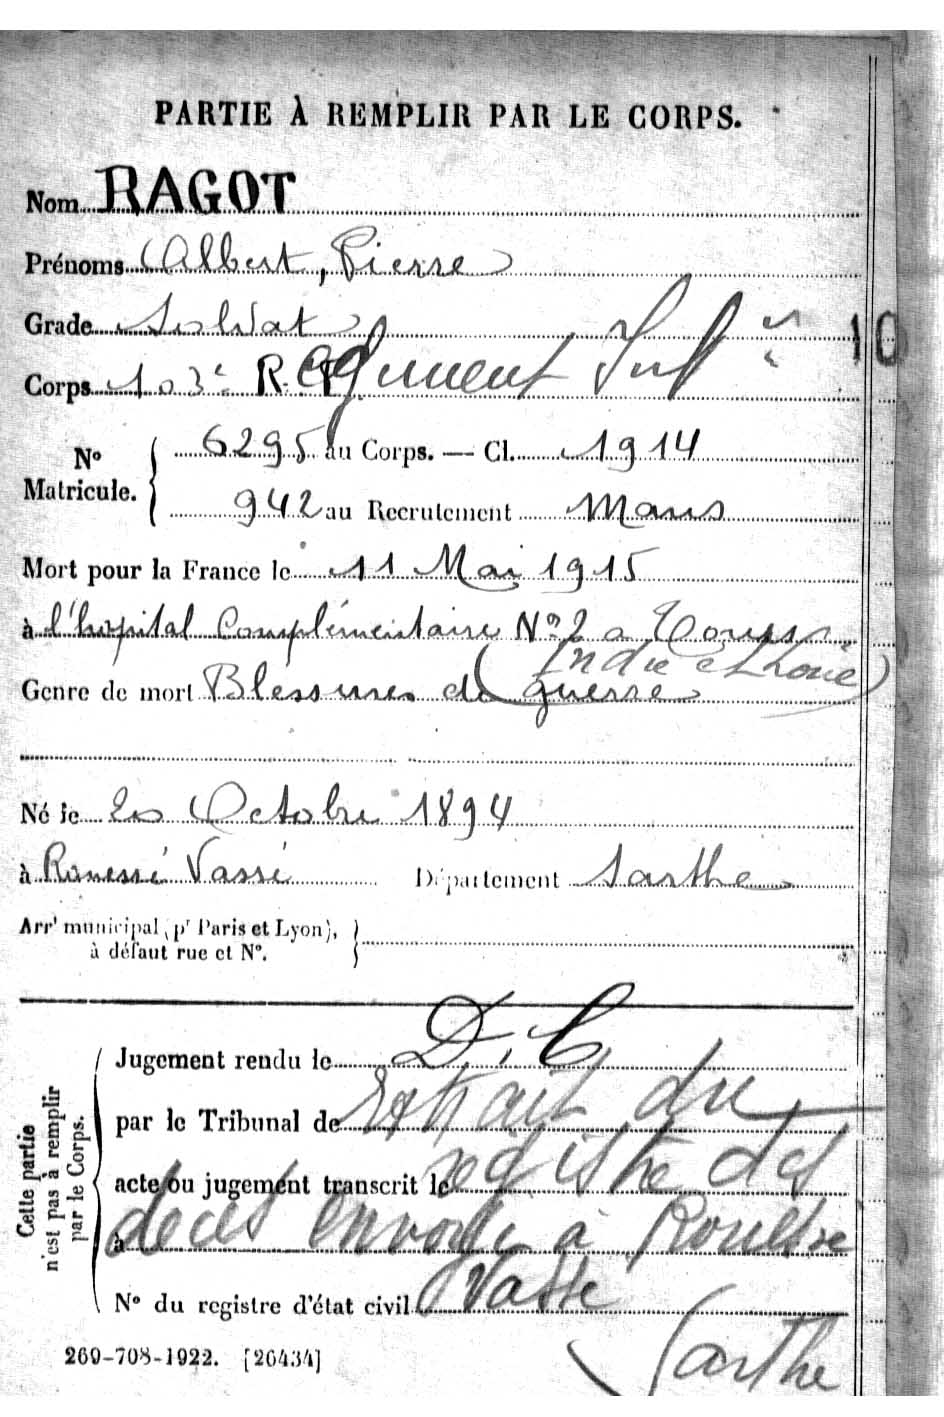 PARTIE À REMPLIR PAR LE CORPS.
Nom RAGOT
Prénoms Albert, Pierre
Grade Soldat
10
Corps 103e Régiment Infie
No Matricule. 6295 au Corps. — Cl. 1914
942 au Recrutement Mans
Mort pour la France le 11 Mai 1915
à l'hopital Complémentaire No 2 a Tours
(Indre et Loire)
Genre de mort Blessures de guerre
Né le 20 Octobre 1894
à Rouessé Vassé Département Sarthe
Arrt municipal (pr Paris et Lyon),
à défaut rue et No.
Cette partie n'est pas à remplir par le Corps.
Jugement rendu le D.C
par le Tribunal de Extrait du
acte ou jugement transcrit le registre des
à deces envoyé à Rouessé
No du registre d'état civil Vassé
Sarthe
269-708-1922. [26434]